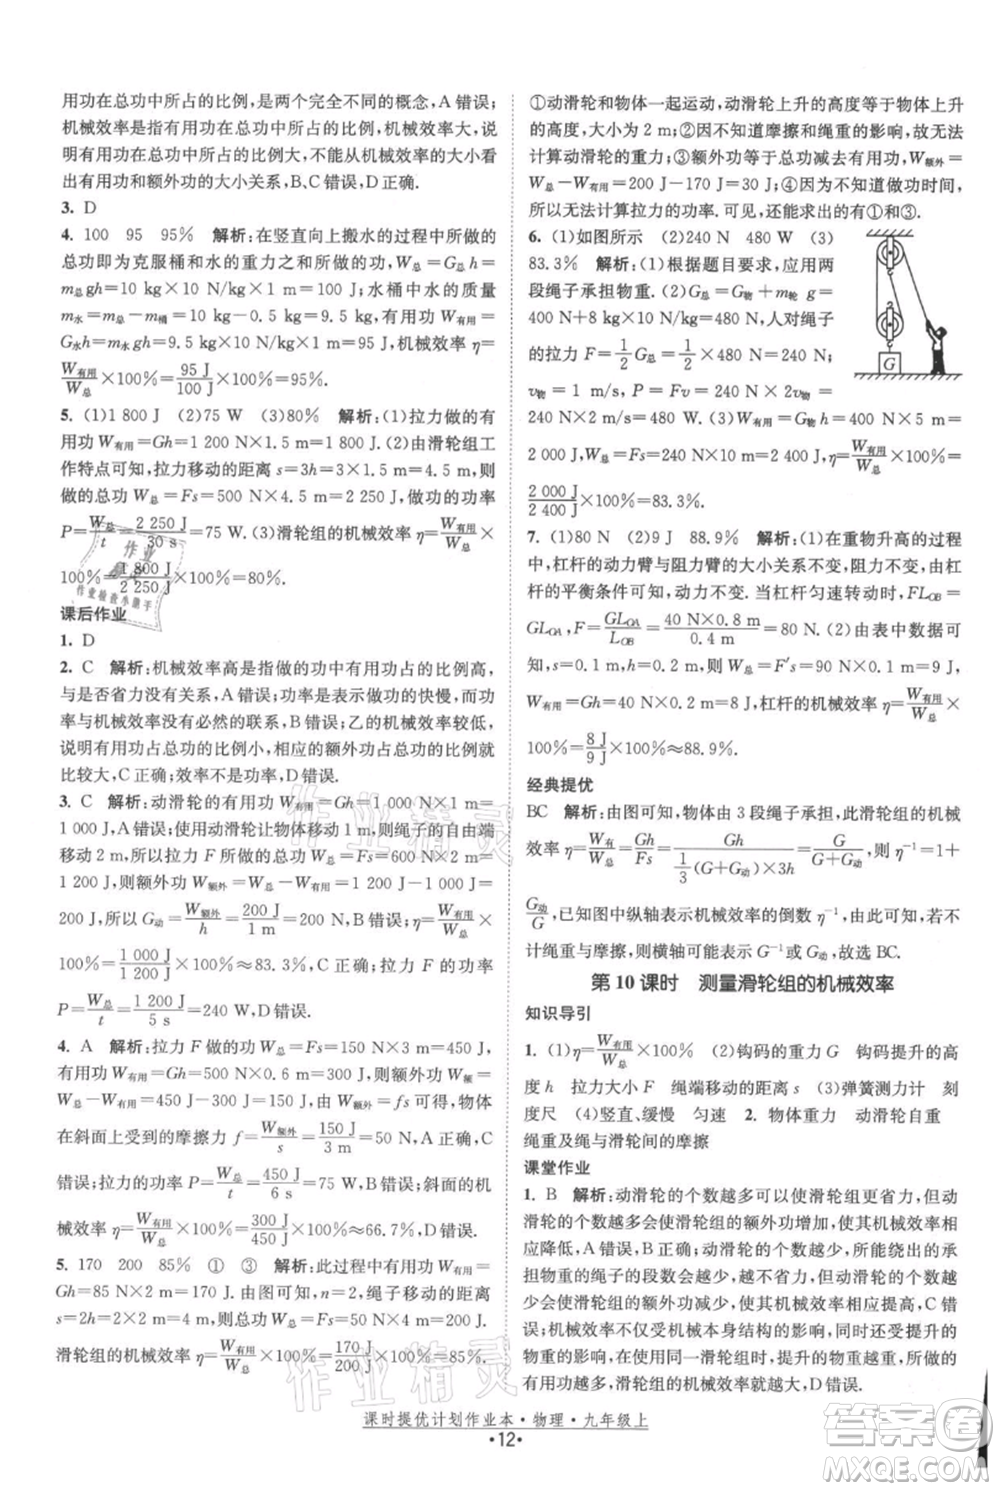 用功在总功中所占的比例，是两个完全不同的概念，A 错误；
机械效率是有用功在总功中所占的比例，机械效率大，说明
有用功占总功的比例大，不能从机械效率的大小看
出有用功和额外功的大小关系，B、C 错误，D 正确.
3. D
4. 100 95 95% 解析：在竖直向上搬水的过程中所做的
总功即为克服桶和水的重力之和所做的功，W总＝G总h＝
m总gh＝10 kg×10 N/kg×1 m＝100 J；水桶中水的质量
m水＝m总－m桶＝10 kg－0.5 kg＝9.5 kg，有用功 W有用＝
G水h＝m水gh＝9.5 kg×10 N/kg×1 m＝95 J，机械效率 η＝
W有用/W总×100%＝95 J/100 J×100%＝95%.
5. (1)1 800 J (2)75 W (3)80% 解析：(1)拉力做的有
用功 W有用＝Gh＝1 200 N×1.5 m＝1 800 J.(2)由滑轮组工
作特点可知，拉力移动的距离 s＝3h＝3×1.5 m＝4.5 m，则
做的总功 W总＝Fs＝500 N×4.5 m＝2 250 J，做功的功率
P＝W总/t＝2 250 J/30 s＝75 W.(3)滑轮组的机械效率 η＝W有用/W总×
100%＝1 800 J/2 250 J×100%＝80%.
课后作业
1. D
2. C 解析：机械效率高是指做的功中有用功占的比例高，
与是否省力没有关系，A 错误；功率是表示做功的快慢，而功
率与机械效率没有必然的联系，B 错误；乙的机械效率较低，
说明有用功占总功的比例小，相应的额外功占总功的比例就
比甲大，C 正确；效率不是功率，D 错误.
3. C 解析：动滑轮的有用功 W有用＝Gh＝1 000 N×1 m＝
1 000 J，用动滑轮让物体移动 1 m，则绳子的自由端移
动了 2 m，所以拉力 F 做的总功 W总＝Fs＝600 N×2 m＝
1 200 J，则额外功 W额外＝1 200 J－1 000 J＝200 J，W额外＝
G动h，所以 G动＝W额外/h＝200 J/1 m＝200 N；η＝W有用/W总×
100%＝1 000 J/1 200 J×100%≈83.3%；拉力 F 的功率 P＝
W总/t＝1 200 J/5 s＝240 W.
4. A 解析：拉力 F 做的总功 W总＝Fs＝150 N×3 m＝450 J，
有用功 W有用＝Gh＝300 N×1 m＝300 J，则额外功 W额外＝
W总－W有用＝450 J－300 J＝150 J，由 W额外＝fs 可得，物体
在斜面上受到的摩擦力 f＝W额外/s＝150 J/3 m＝50 N，A 正确，B
错误；拉力的功率 P＝W总/t＝450 J/6 s＝75 W，C 错误；斜面的机
械效率 η＝W有用/W总×100%＝300 J/450 J×100%≈66.7%，D 错误.
5. 170 200 85% ① ③ 解析：此过程中有用功 W有用＝
Gh＝85 N×2 m＝170 J.由图可知，n＝2，绳子移动的距离
s＝2h＝2×2 m＝4 m，总功 W总＝Fs＝50 N×4 m＝200 J.
滑轮组的机械效率 η＝W有用/W总×100%＝170 J/200 J×100%＝85%.
①动滑轮和物体一起运动，动滑轮上升的高度等于物体上升
的高度，大小为 2 m；②不知道摩擦和绳重的影响，故无法
计算动滑轮的重力；③额外功等于总功减去有用功，W额外＝
W总－W有用＝200 J－170 J＝30 J；④因为不知道做功时间，
所以无法计算拉力的功率.可见，还可求出的有①和③.
6. (1)如图所示 (2)240 N 480 W (3)
83.3% 解析：(1)根据题目要求，应用两
段绳子承担物重.(2)G总＝G物＋m轮 g＝
400 N＋8 kg×10 N/kg＝480 N，人对绳子
的拉力 F＝1/2G总＝1/2×480 N＝240 N；
v绳＝2v物，P＝Fv＝240 N×2v物＝
240 N×2×1 m/s＝480 W.(3)W有用＝G物h＝400 N×5 m＝
2 000 J，W总＝Fs＝240 N×10 m＝2 400 J，η＝W有用/W总×100%＝
2 000 J/2 400 J×100%≈83.3%.
G
7. (1)80 N (2)9 J 8 J 88.9% 解析：(1)在重物升高的过程
中，杠杆的动力臂与阻力臂的大小关系不变，阻力不变，由杠
杆的平衡条件可知，动力大小不变.当杠杆匀速转动时，FLOB＝
GLOA，F＝GLOA/LOB＝40 N×0.8 m/0.4 m＝80 N.(2)由表中数据可
知，s＝0.1 m，h＝0.2 m，则 W总＝F′s＝90 N×0.1 m＝9 J，
W有用＝Gh＝40 N×0.2 m＝8 J，杠杆的机械效率 η＝W有用/W总×
100%＝8 J/9 J×100%≈88.9%.
经典提优
BC 解析：由图可知，物体由 3 段绳子承担，此滑轮组的机械
效率 η＝W有用/W总＝Gh/Fs＝Gh/(1/3(G＋G动)×3h)＝G/(G＋G动)，则 η⁻¹＝1＋
G动/G，已知图中纵轴表示机械效率的倒数 η⁻¹，由此可知，若不
计绳重与摩擦，则横轴可能表示 G⁻¹或 G动，故选 BC.
第 10 课时 测量滑轮组的机械效率
知识导引
1. (1)η＝W有用/W总×100% (2)钩码的重力 G 钩码提升的高
度 h 拉力大小 F 绳端移动的距离 s (3)弹簧测力计 刻
度尺 (4)竖直、缓慢 匀速 2. 物体重力 动滑轮自重
绳重及绳与滑轮间的摩擦
课堂作业
1. B 解析：动滑轮的个数越多可以使滑轮组省力，但动
滑轮的个数越多会使滑轮组的额外功增加，所以动滑轮的个
数不是越多越好，A 错误，B 正确；滑轮的个数越少，承
担物重的绳子的段数会越少，可能会越费力，但因动滑轮
重带来的影响越小，所以滑轮组的额外功会越少，C 错
误；影响滑轮组机械效率的有机械本身结构的影响，也有提升的
重物的影响，所以同一滑轮组，提升的物重越多，有用
功就越多，所以滑轮组的机械效率就越大，D 错误.
课时提优计划作业本·物理·九年级上
·12·
作业精灵
作业精灵
作业
精灵
作业检查小助手
答案圈
MXQE.COM